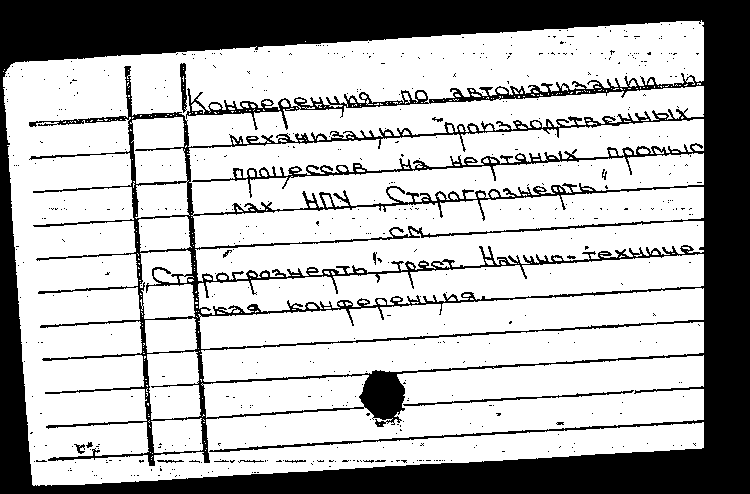 Конференция по автоматизации и
механизации производственных
процессов на нефтяных промыс
лах НПУ „Старогрознефть".
см.
„Старогрознефть", трест. Научно-техниче-
ская конференция.